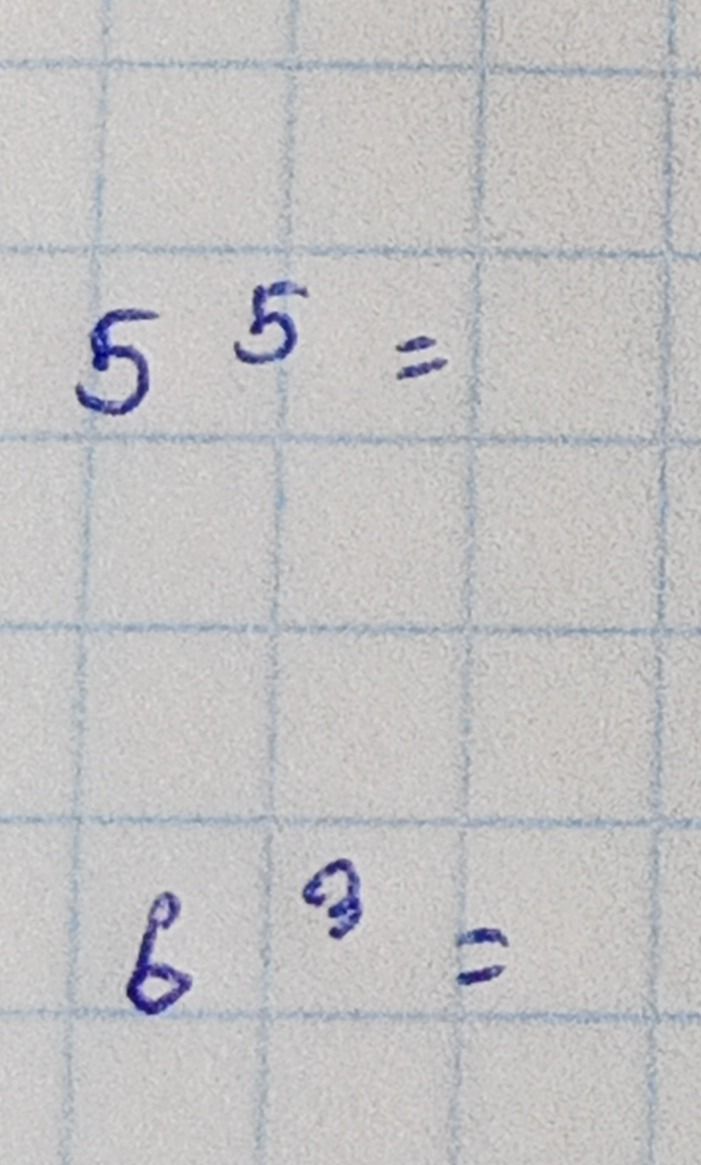 5⁵ =
6³ =